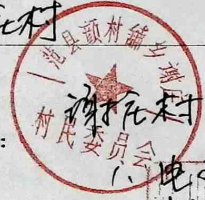 庄村
范县颜村铺乡谢庄
谢庄村
村民委员会
八、电